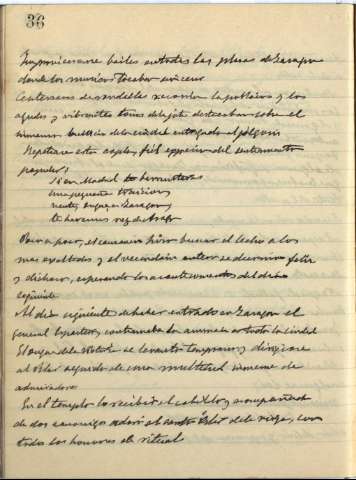 36
Improvisáronse bailes en todas las plazas de Zaragoza
donde los músicos tocaban sin cesar
Centenares de rondallas recorrían la población y los
agudos y vibrantes tonos de la jota destacaban sobre el
inmenso bullicio de la ciudad entregada al
Repetíase esta copla, fiel expresión del sentimiento
popular:
Si en Madrid te hicieron
una pequeña traición,
vente, Duque, a Zaragoza y
te haremos rey de Aragón
Poco a poco, el cansancio hizo buscar el lecho a los
mas exaltados y el vecindario entero se durmió feliz
y dichoso, esperando los acontecimientos del día
siguiente
Al día siguiente de haber entrado en Zaragoza el
general Espartero, continuaba la animación en toda la ciudad
El Duque de la Victoria se levantó temprano y dirigiose
al Pilar seguido de una multitud inmensa de
admiradores
En el templo lo recibió el cabildo y acompañado
de dos canónigos adoró el santo Pilar de la Virgen, con
todos los honores de ritual